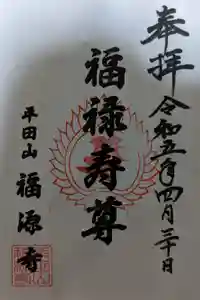 奉拝 令和五年四月三十日
福禄寿尊
平田山 福源寺